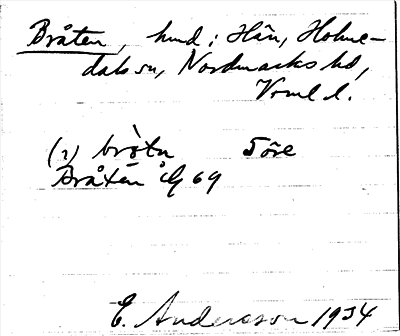 Bråten, hmd i Hån, Holme-
dals sn, Nordmarks hd,
Vrml l.
(2) bròtn 5 öre
Bråten ÅG 69
E. Andersson 1934